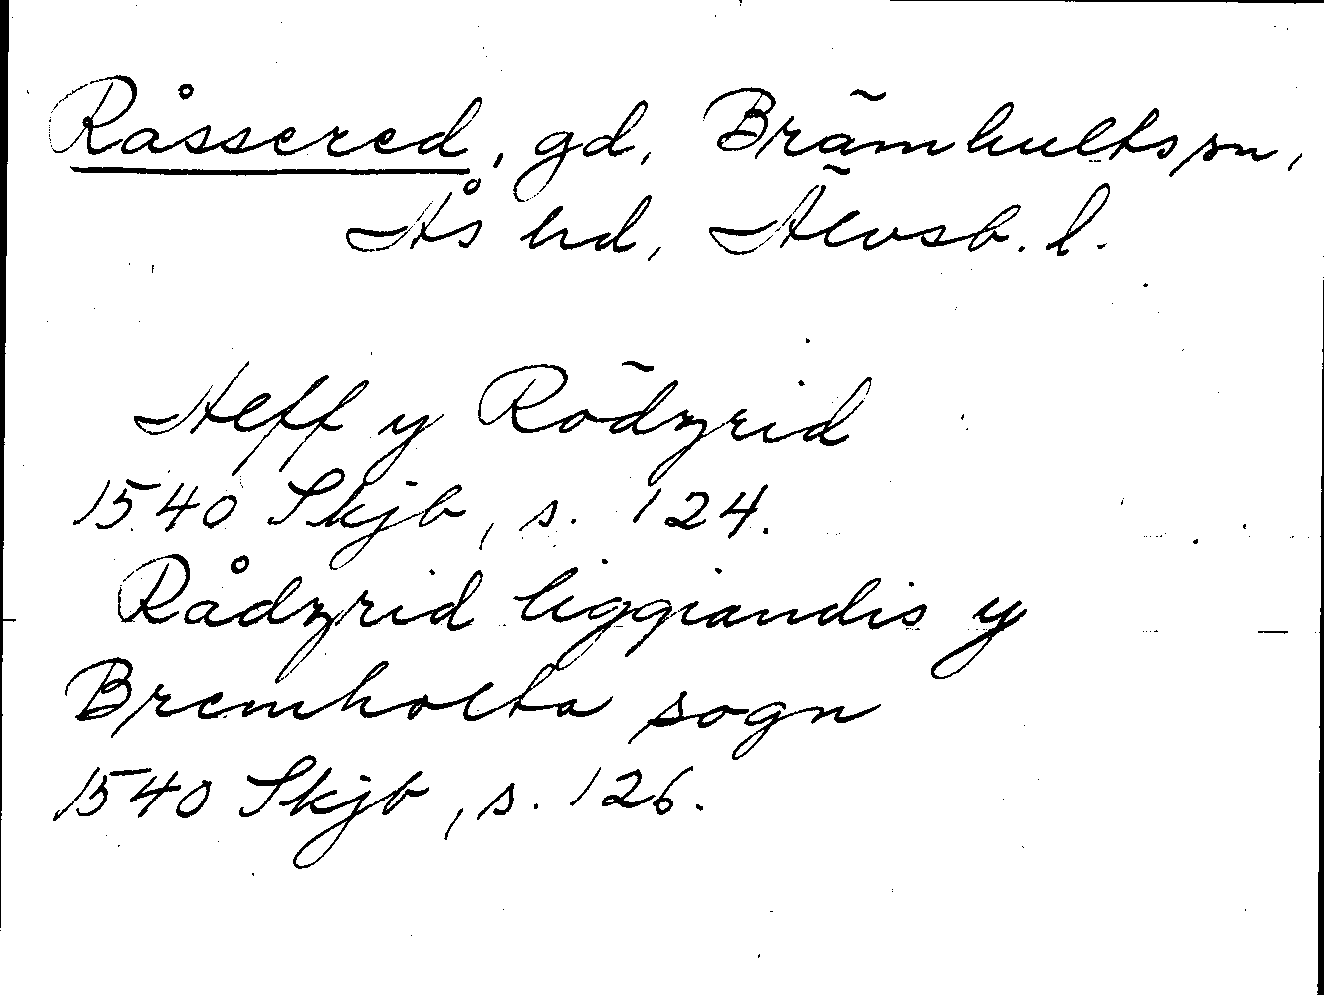 Råssered, gd, Brämhults sn,
Ås hd, Älvsb. l.
Aleff y Rödzrid
1540 Skjb, s. 124.
Rådzrid liggiandis y
Bremholta sogn
1540 Skjb, s. 126.